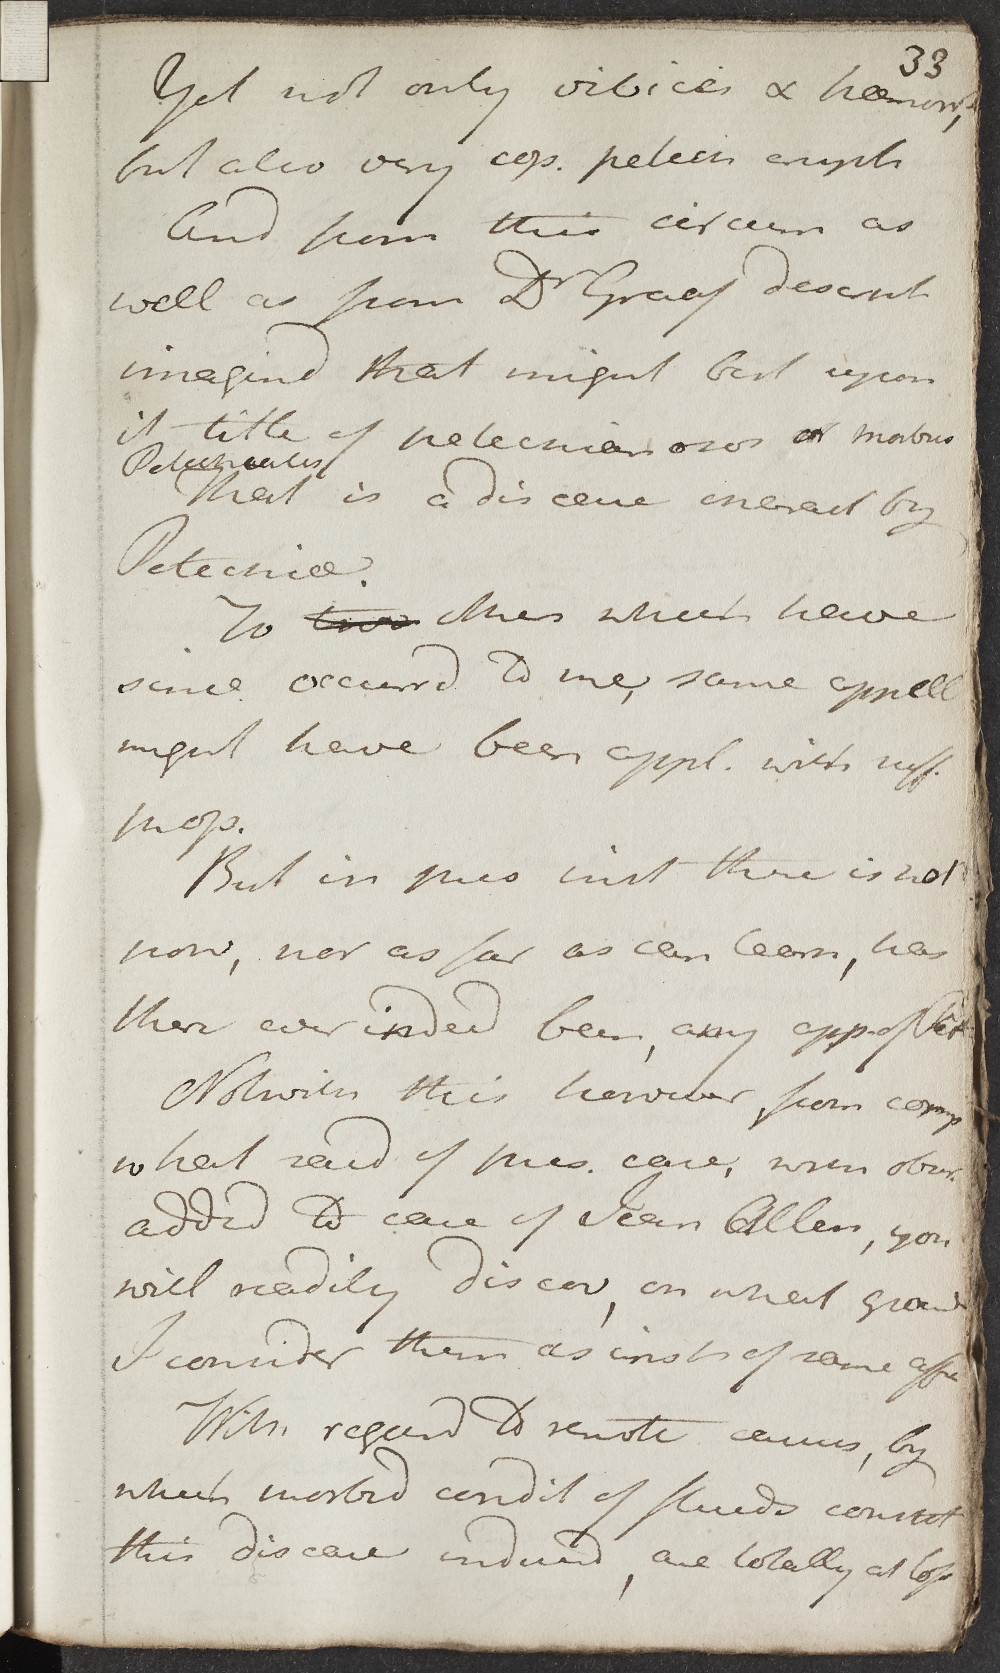 33
Yet not only vibices & hæmorr,
but also very cop. petech erupti
And from this circum as
well as from Dr Graaf descript
imagind that might best upon
it title of petechianosos or morbus
Petechialis
That is a disease charact by
Petechiæ.
To two others which have
since occurrd to me, same appell
might have been appl. with suff.
prop.
But in pres inst there is not
now, nor as far as can learn, has
there ever indeed been, any app. of Pet
Notwith this however, from comp
what said of pres. case, when obser.
added to case of Jean Allen, you
will readily discov, on what ground
I consider them as insts of same affe
With regard to remote causes, by
which morbid condit of fluids constit
this disease induced, are totally at loss